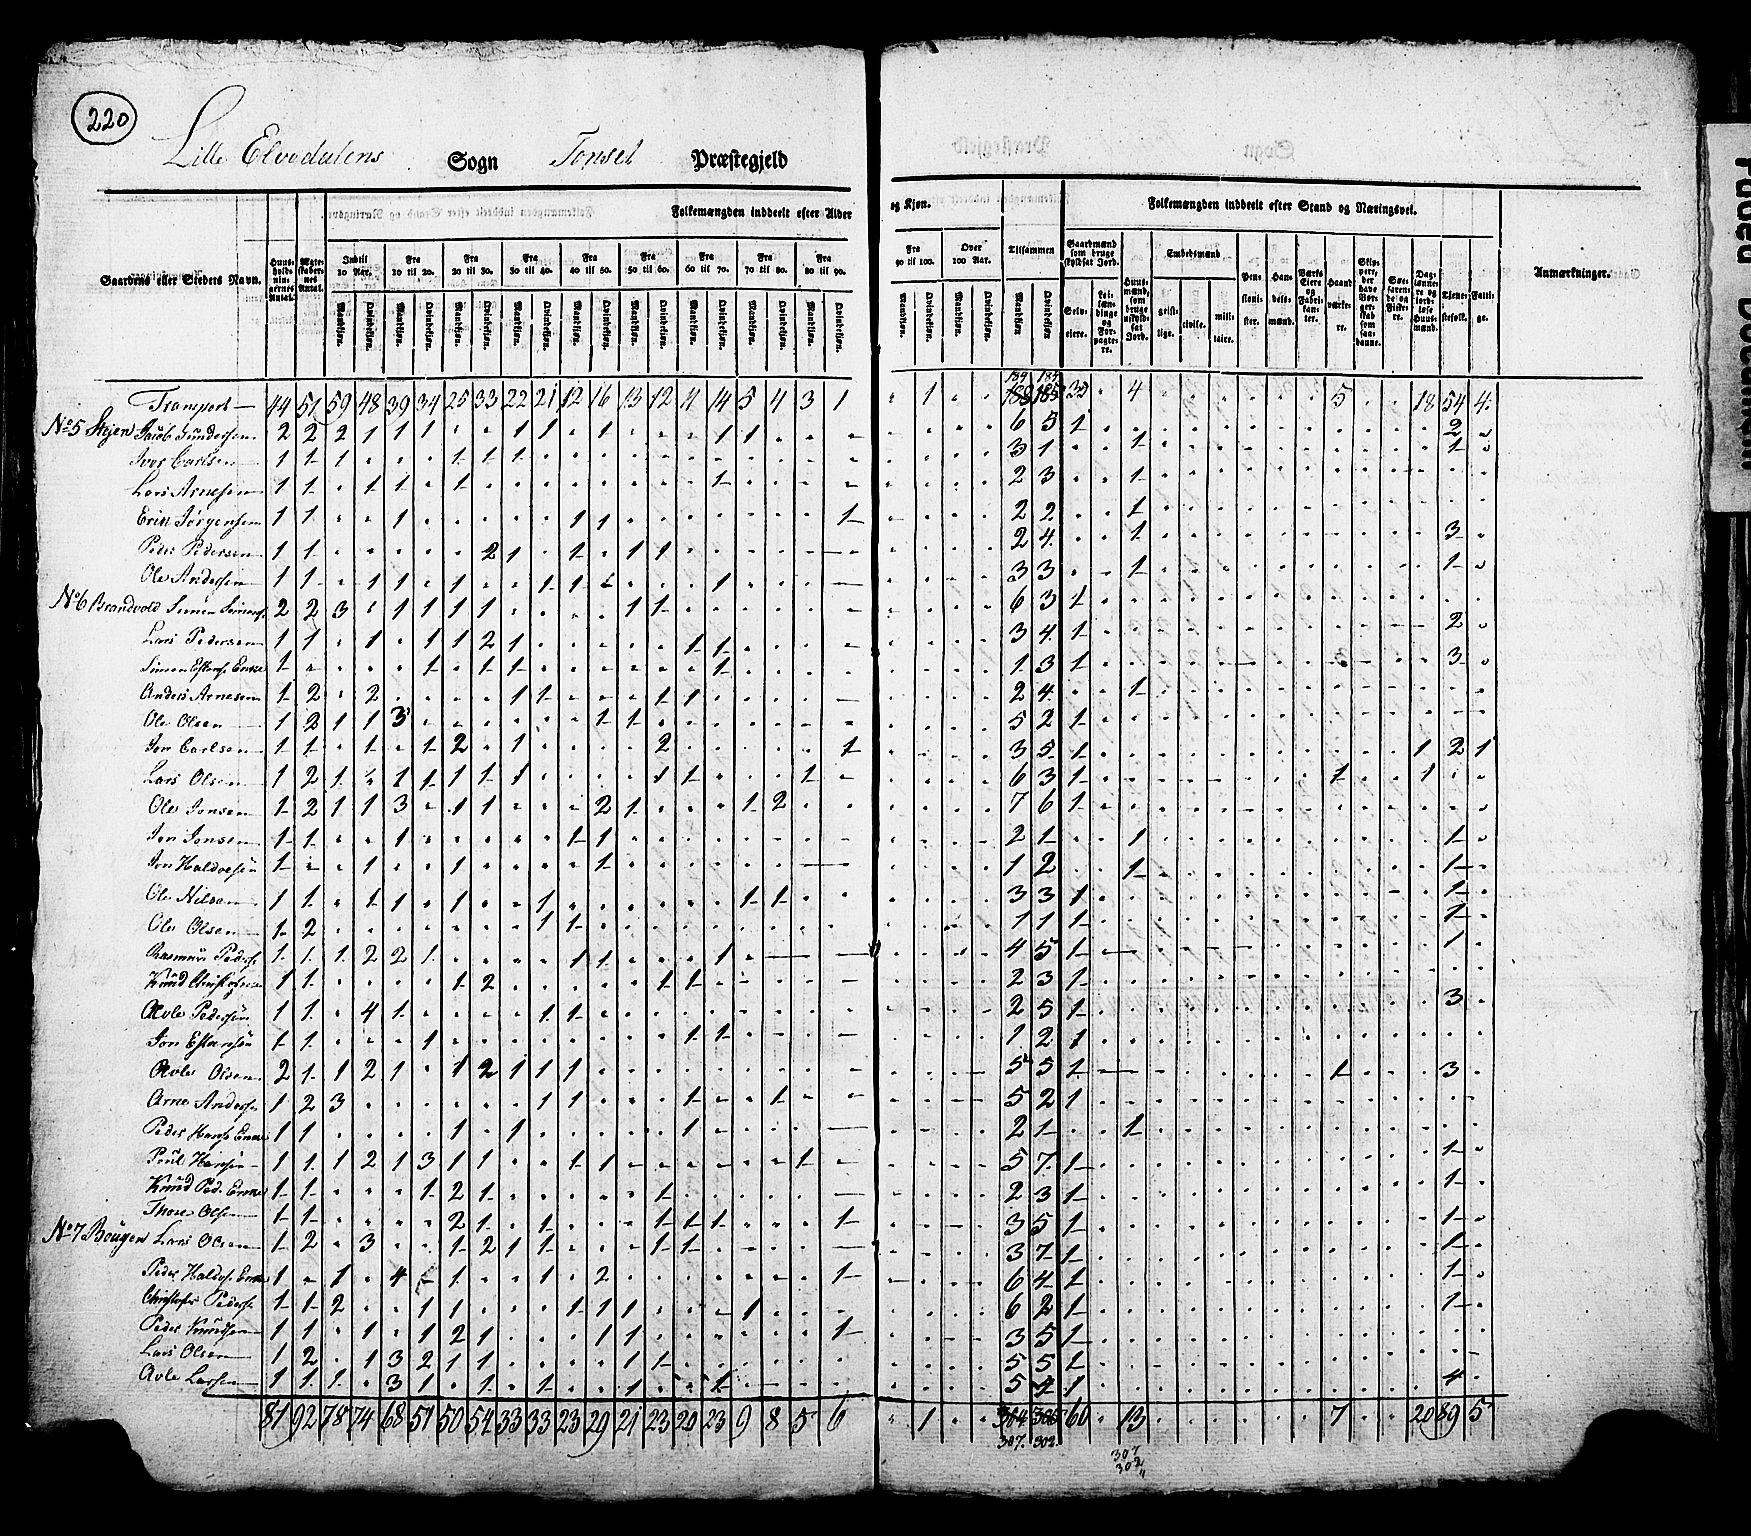 220
Lille Elvedalens Sogn Tonset Præstegjeld
Folkemængden inddeelt efter Alder
og Kjøn.
Folkemængden inddeelt efter Stand og Næringsvei.
Gaardens eller Stedets Navn.
Indtil 10 Aar. Fra 10 til 20. Fra 20 til 30. Fra 30 til 40. Fra 40 til 50. Fra 50 til 60. Fra 60 til 70. Fra 70 til 80. Fra 80 til 90.
Fra 90 til 100. Over 100 Aar. Tilsammen
Gaardmænd som bruge skyldsat Jord.
Embedsmænd
Anmærkninger.
Mandkjøn. Qvindekjøn.
Selv-eiere.
geist-lige. civile. mili-taire.
Transport 44 51 59 48 39 34 25 33 22 21 12 16 13 12 11 14 5 4 3 1
No 5 Skjen Jacob Gundersen 2 2 2 1 1 1 1 1 1 1 1 6 5 1 2
Iver Carlsen 1 1 1 1 1 1 3 1 1 1
Lars Arnesen 1 1 1 1 1 1 2 3 1
Erik Jørgensen 1 1 1 1 1 1 2 2 1
Peder Pedersen 1 1 2 1 1 1 1 2 4 1 3
Ole Andersen 1 1 1 1 1 1 1 1 3 3 1 1
No 6 Brandvold Simen Simens. 2 2 3 1 1 1 1 1 1 6 3 1
Lars Pedersen 1 1 1 1 1 2 1 1 1 3 4 1 2
Simen Estens. Enke 1 1 1 1 1 1 3 1 3
Anders Arnesen 1 2 2 1 1 1 1 2 4 1
Ole Olsen 1 2 1 1 3 1 1 5 2 1
Jon Carlsen 1 1 1 1 2 1 2 1 3 5 1 1 2 1
Lars Olsen 1 2 1 1 1 1 1 1 1 1 1 6 3 1 1 1
Ole Jonsen 1 2 1 1 3 1 1 2 1 1 2 7 6 1
Jon Jonsen 1 1 1 1 1 2 1 1 1
Jon Haldorsen 1 1 1 1 1 2 1 1
Ole Nilsen 1 1 1 1 1 1 1 1 3 3 1 1
Ole Olsen 1 2 1 1 1 1 1 1
Rasmus Peders. 1 1 1 2 2 1 1 1 1 4 5 1 1
Knud Christophersen 1 1 1 2 1 1 2 3 1
Avle Pedersen 1 1 4 1 1 1 2 5 1 3
Jon Estensen 1 1 1 1 1 1 2 1
Avle Olsen 2 1 1 2 1 1 2 1 1 1 5 5 1 1 3
Arne Andersen 1 2 3 1 1 1 1 5 2 1
Peder Hans. Enke 1 1 1 1 1 2 1 1
Poul Hansen 1 1 1 2 1 3 1 1 1 1 1 5 7 1 1
Knud Ped. Enke 1 1 1 2 1 1 2 3 1 1
Thore Olsen 1 1 2 1 1 1 1 1 1 3 5 1 1
No 7 Bougen Lars Olsen 1 2 3 1 2 1 1 1 1 3 7 1 1
Peder Haldors. Enke 1 1 4 1 1 2 1 6 4 1 1
Christopher Peders. 1 1 2 1 1 1 1 1 1 6 2 1 1
Peder Knudsen 1 1 1 1 2 1 1 1 1 3 5 1
Lars Olsen 1 2 1 3 2 1 1 1 1 5 5 1
Avle Larsen 1 1 1 3 1 1 1 1 1 5 4 1 4
81 92 78 74 68 51 50 54 33 33 23 29 21 23 20 23 9 8 5 6 1 304 305 60 13 7 20 89 5
307. 302.
307
302